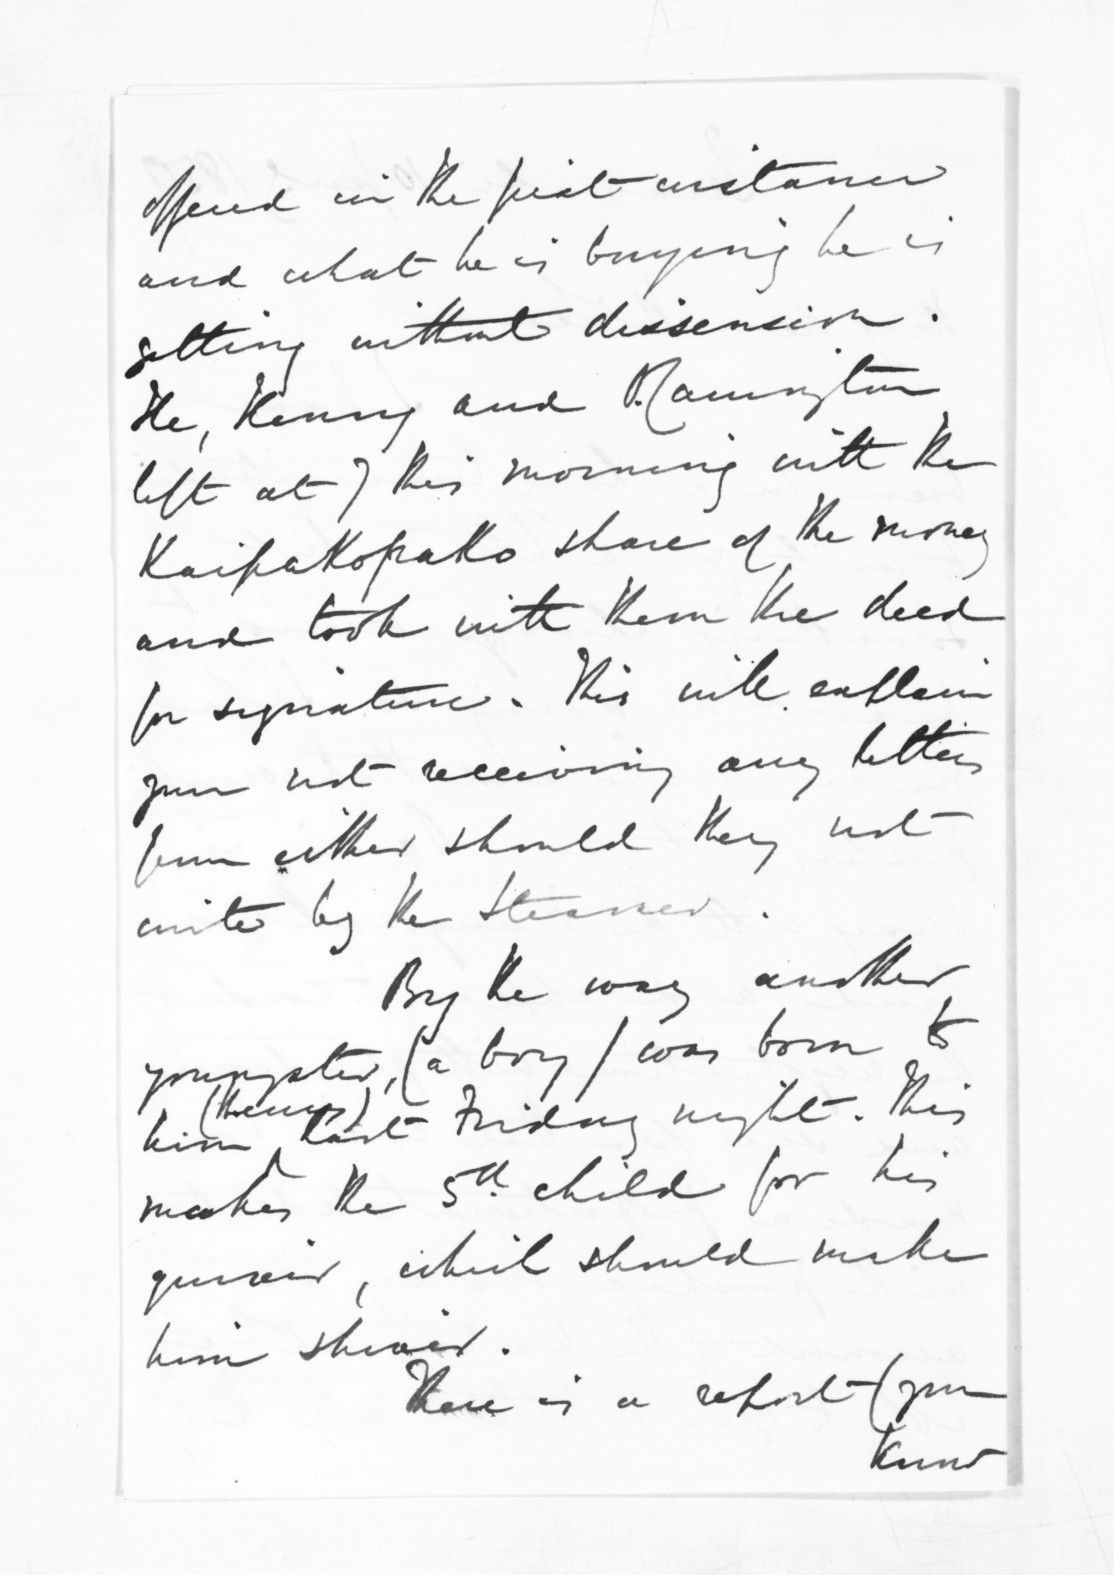 offered in the first instance
and what he is buying he is
getting without dissension.
He, Henry and
left at 7 this morning with the
Kaipakopako share of the money
and took with them the deed
for signature. This will explain
your not receiving any letters
from either should they not
write by the steamer.
By the way another
youngster, (a boy) was born to
(Henry)
him last Friday night. This
makes the 5th child for his
quiver, which should make
him shiver.
There is a report (you
know